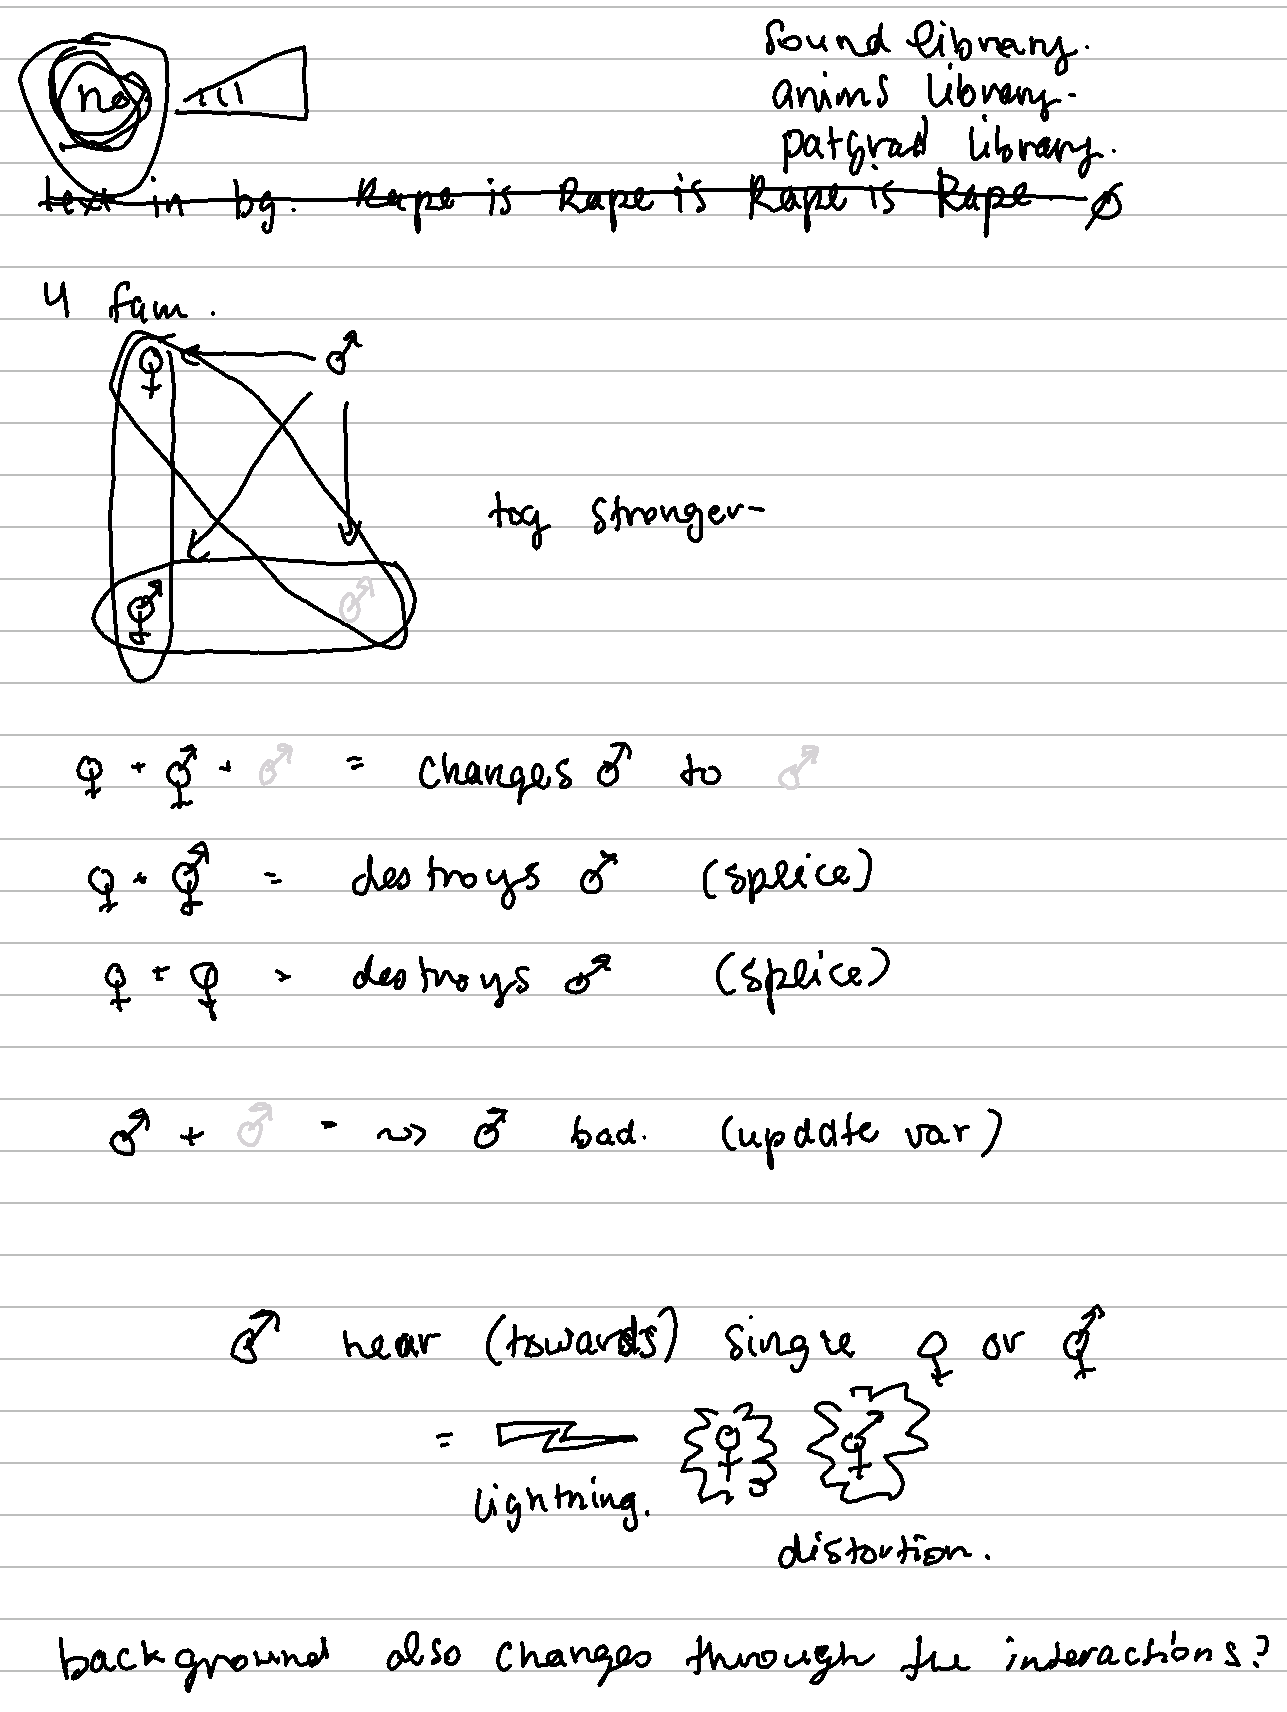 no
sound library.
anims library.
patgrad library.
text in bg. Rape is Rape is Rape is Rape.
4 fam.
♀ ♂
tog stronger
⚥ ♂
♀ + ⚥ + ♂ = changes ♂ to ♂
♀ + ⚥ = destroys ♂ (splice)
♀ + ♀ = destroys ♂ (splice)
♂ + ♂ = ~> ♂ bad. (update var)
♂ near (towards) single ♀ or ⚥
= ♀ ⚥
lightning.
distortion.
background also changes through the interactions?